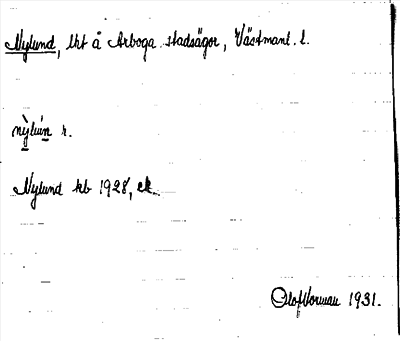 Nylund, lht å Arboga stadsägor, Västmanl. l.
nỳluńn r.
Nylund kb 1928, ek.
Olof Norman 1931.